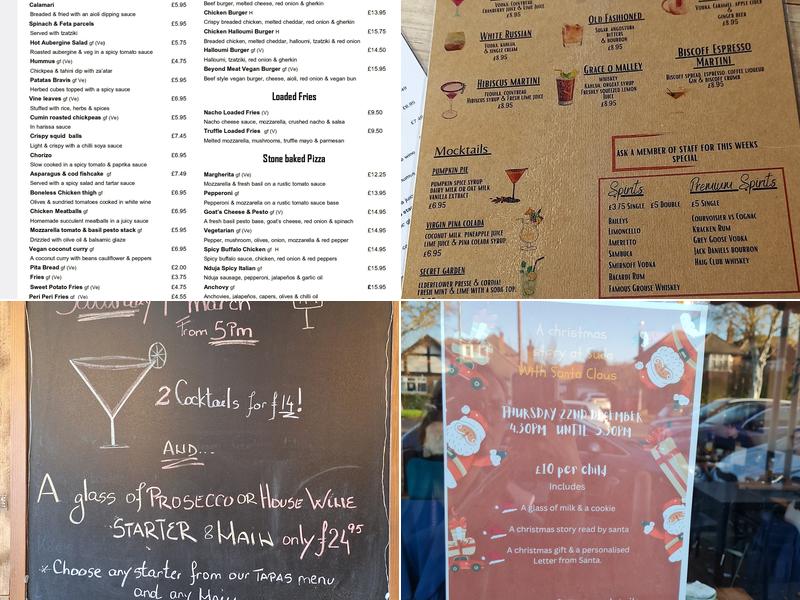 Calamari £5.95
Breaded & fried with an aioli dipping sauce
Spinach & Feta parcels £5.95
Served with tzatziki
Hot Aubergine Salad gf (Ve) £5.75
Roasted aubergine & veg in a spicy tomato sauce
Hummus gf (Ve) £4.75
Chickpea & tahini dip with za'atar
Patatas Bravis gf (Ve) £5.95
Herbed cubes topped with a spicy sauce
Vine leaves gf (Ve) £6.95
Stuffed with rice, herbs & spices
Cumin roasted chickpeas gf (Ve) £5.95
In harissa sauce
Crispy squid balls £7.45
Light & crispy with a chilli soya sauce
Chorizo £6.95
Slow cooked in a spicy tomato & paprika sauce
Asparagus & cod fishcake gf £7.49
Served with a spicy salad and tartar sauce
Boneless Chicken thigh gf £6.95
Olives & sundried tomatoes cooked in white wine
Chicken Meatballs gf £6.95
Homemade succulent meatballs in a juicy sauce
Mozzarella tomato & basil pesto stack gf £5.95
Drizzled with olive oil & balsamic glaze
Vegan coconut curry gf £6.95
A coconut curry with beans cauliflower & peppers
Pita Bread gf (Ve) £2.00
Fries gf (Ve) £3.75
Sweet Potato Fries gf (Ve) £4.75
Peri Peri Fries gf (Ve) £4.55
Beef burger, melted cheese, red onion & gherkin
Chicken Burger H £13.95
Crispy breaded chicken, melted cheddar, red onion & gherkin
Chicken Halloumi Burger H £15.75
Breaded chicken, melted cheddar, halloumi, tzatziki & red onion
Halloumi Burger gf (V) £14.50
Halloumi, tzatziki, red onion & gherkin
Beyond Meat Vegan Burger gf (Ve) £15.95
Beef style vegan burger, cheese, aioli, red onion & vegan bun
Loaded Fries
Nacho Loaded Fries (V) £9.50
Nacho cheese sauce, mozzarella, crushed nacho & salsa
Truffle Loaded Fries gf (V) £9.50
Melted mozzarella, mushrooms, truffle mayo & parmesan
Stone baked Pizza
Margherita gf (Ve) £12.25
Mozzarella & fresh basil on a rustic tomato sauce
Pepperoni gf £13.95
Pepperoni & mozzarella on a rustic tomato sauce base
Goat's Cheese & Pesto gf (V) £14.95
A fresh basil pesto base, goat's cheese, red onion & spinach
Vegetarian gf (Ve) £14.95
Pepper, mushroom, olives, onion, mozzarella & red pepper
Spicy Buffalo Chicken gf H £15.95
Spicy buffalo sauce, chicken, red onion & red peppers
Nduja Spicy Italian gf £15.95
Nduja sausage, pepperoni, jalapeños & garlic oil
Anchovy gf £15.95
Anchovies, jalapeños, capers, olives & chilli oil
Vodka, Cointreau
Cranberry juice & Lime juice
£8.95
White Russian
Vodka, Kahlua,
& Single cream
£8.95
Hibiscus Martini
Tequila, Cointreau
Hibiscus syrup & fresh lime juice
£8.95
Old Fashioned
Sugar, Angostura
Bitters
& Bourbon
£8.95
Grace O Malley
Whiskey
Kahlua, Orgeat syrup
Freshly squeezed lemon
juice
£8.95
Vodka, Caramel, Apple
cider &
Ginger Beer
£8.95
Biscoff Espresso
Martini
Biscoff spread, Espresso, Coffee liqueur
Gin & Biscoff crumb
£8.95
Mocktails
Pumpkin Pie
Pumpkin spice syrup
Dairy milk or oat milk
Vanilla extract
£6.95
Virgin Pina Colada
Coconut milk, pineapple juice
Lime juice & pina colada syrup
£6.95
Secret Garden
Elderflower presse & cordial
Fresh mint & lime with a soda top
ASK A MEMBER OF STAFF FOR THIS WEEKS
SPECIAL
Spirits
£3.75 single £5 double
Baileys
Limoncello
Ameretto
Sambuca
Smirnoff Vodka
Bacardi Rum
Famous Grouse Whiskey
Premium Spirits
£5 single
Courvoisier vs Cognac
Kracken Rum
Grey Goose Vodka
Jack Daniels Bourbon
Haig Club Whiskey
Saturday 1st March
From 5pm
2 Cocktails for £14!
AND...
A glass of PROSECCO OR HOUSE WINE
STARTER & MAIN only £24.95
*Choose any starter from our TAPAS menu
and any Main
A christmas
story at Suda
With Santa Claus
THURSDAY 22ND DECEMBER
4.30PM UNTIL 5.30PM
£10 per child
Includes
A glass of milk & a cookie
A christmas story read by santa
A christmas gift & a personalised
Letter from Santa.